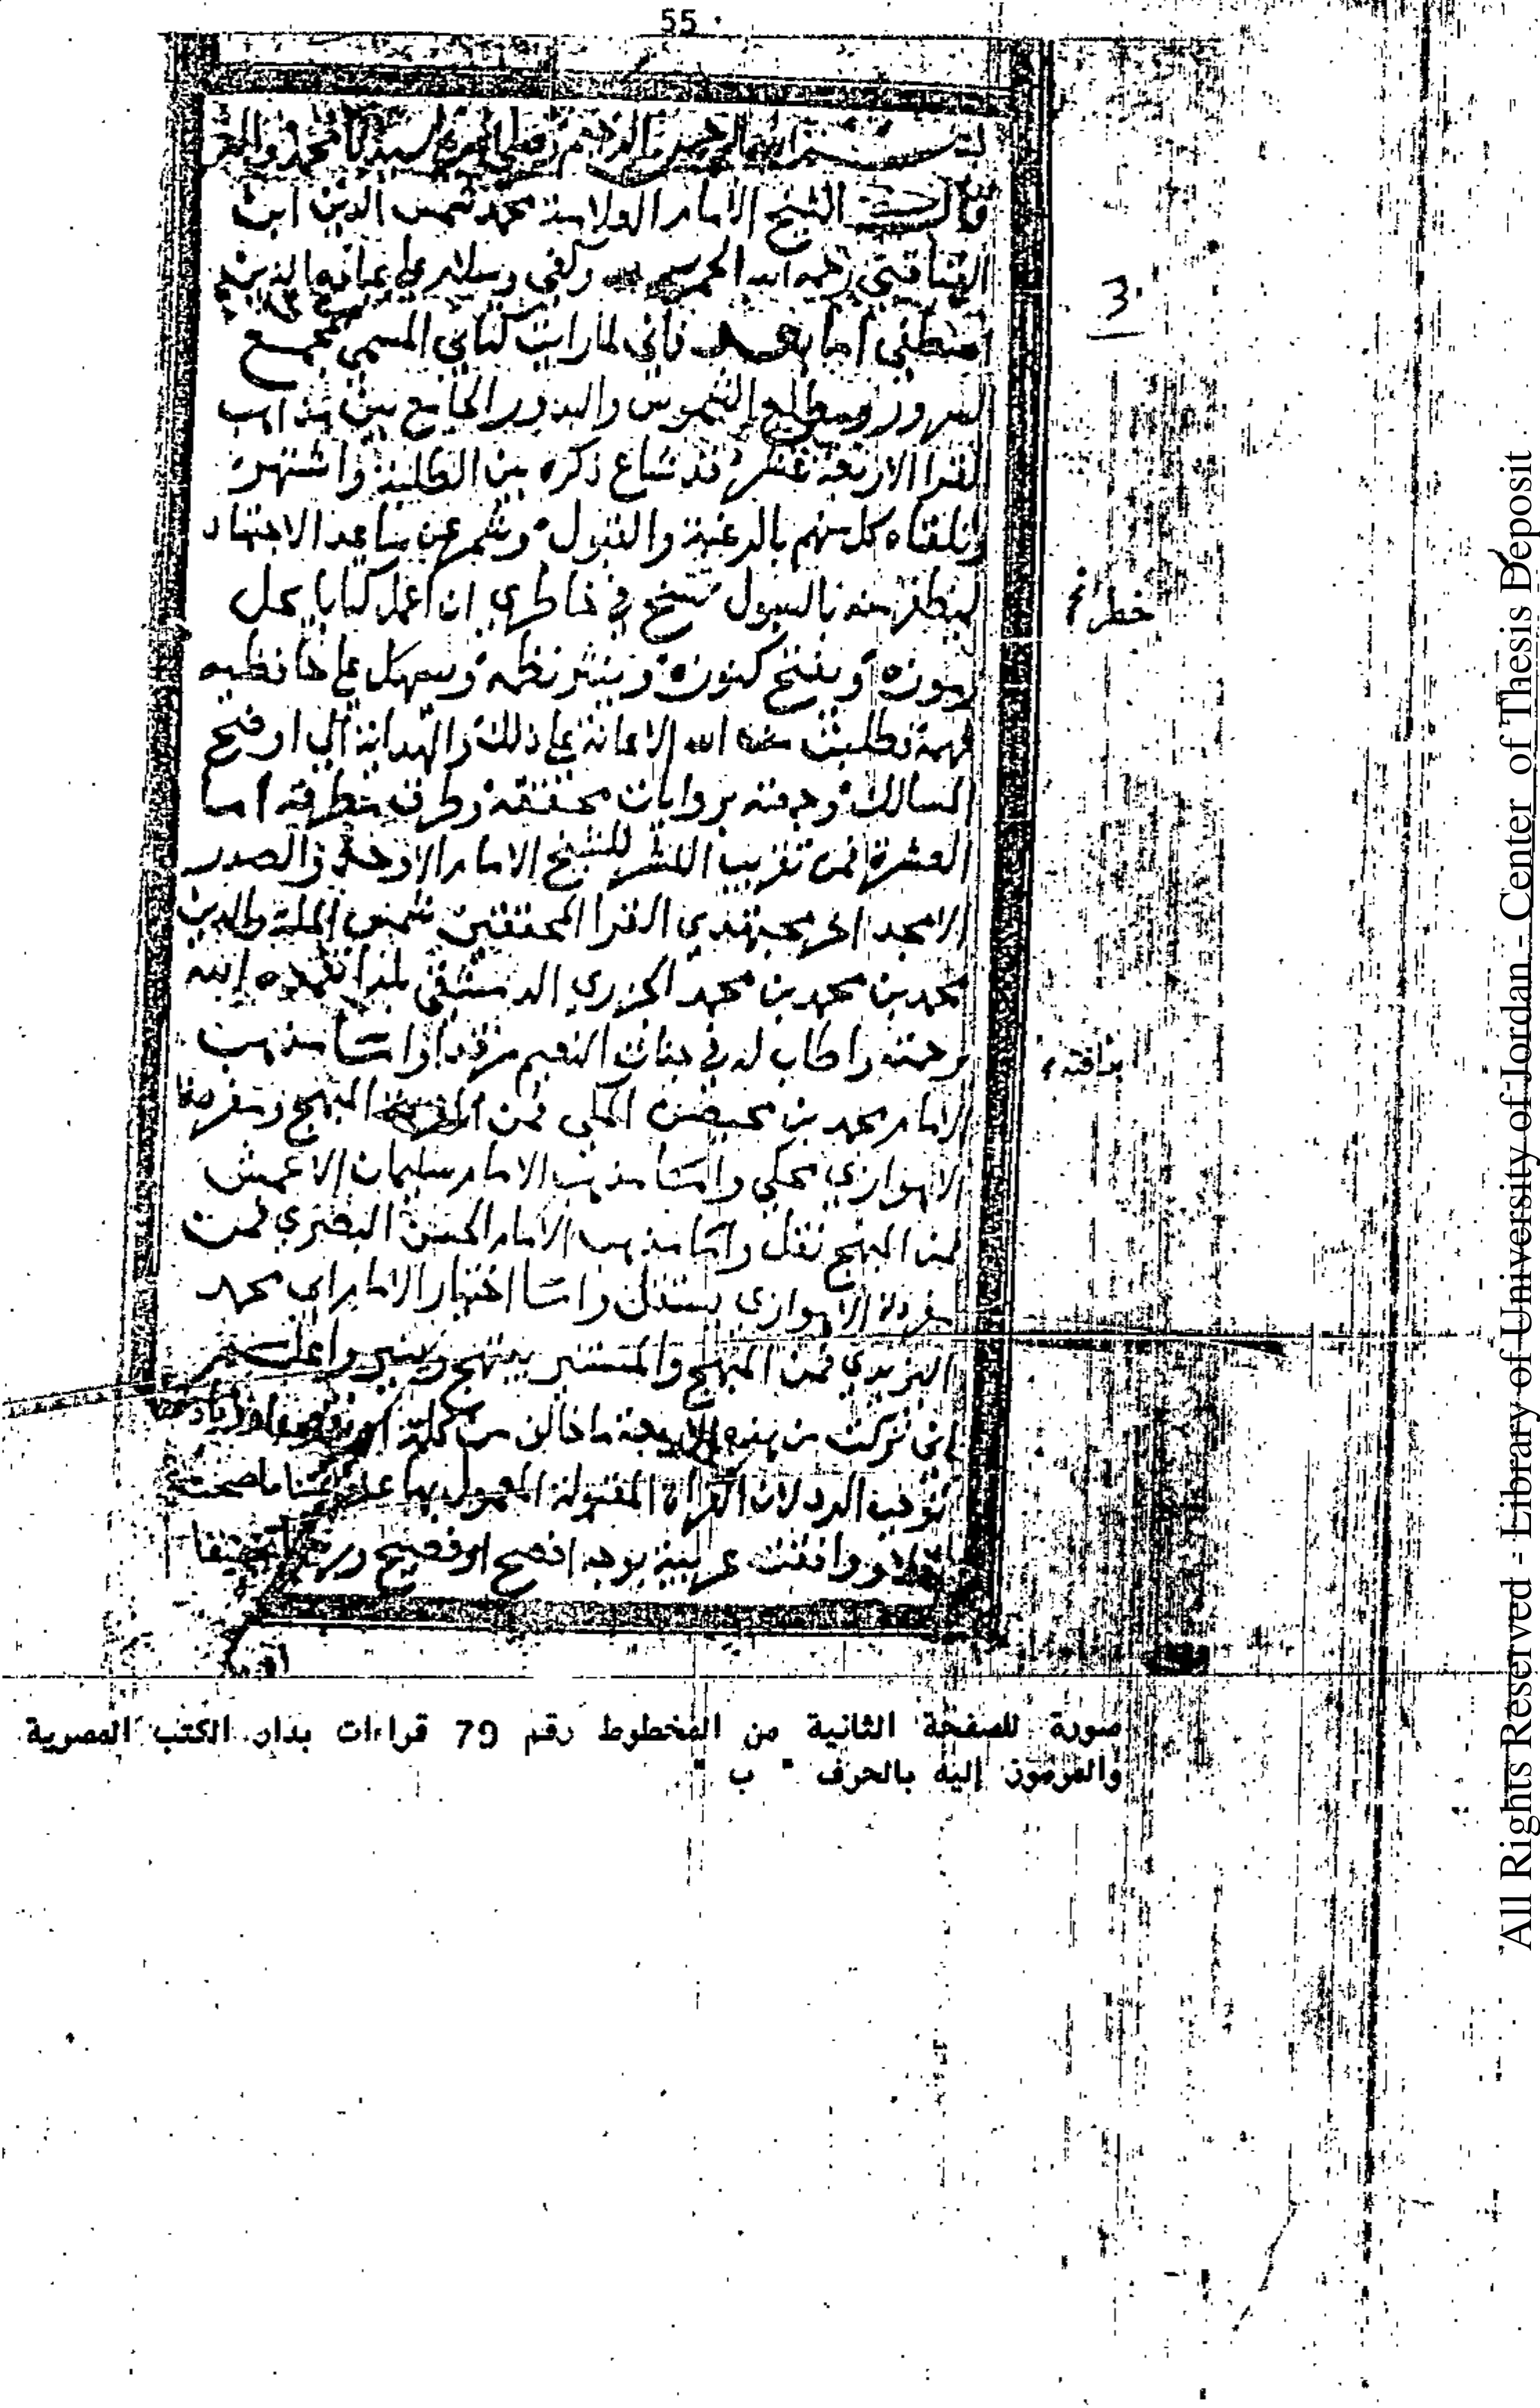 55
بسم الله الرحمن الرحيم سيدنا محمد
قال الشيخ الامام العلامة محمد شمس الدين ابن
القباقبي رحمه الله الحمد لله وكفى وسلام على عباده الذين
اصطفى اما بعد فاني لما رايت كتابي المسمى بمجمع
السرور ومطلع الشموس والبدور الجامع بين مذاهب
القرا الاربعة عشر قد شاع ذكره بين الطلبة واشتهر
وتلقاه كل منهم بالرغبة والقبول وشمر عن ساعد الاجتهاد
ليظفر منه بالسول سنح في خاطري ان اعمل كتابا يحل
رموزه ويفتح كنوزه وينثر نظمه ويسهل على حافظيه
فهمه فطلبت من الله الاعانة على ذلك والهداية الى اوضح
المسالك وجمعته بروايات محققة وطرق اما
العشرة فمن تقريب النشر للشيخ الامام الاوحد والصدر
الامجد اخر مجتهدي القرا المحققين شمس الملة والدين
محمد بن محمد بن محمد الجزري الدمشقي تغمده الله
برحمته واطاب له في جنان النعيم مرقدا واما مذهب
الامام محمد بن محيصن المكي فمن المبهج ومفردة
الاهوازي محكي واما مذهب الامام سليمان الاعمش
فمن المبهج نقل واما مذهب الامام الحسن البصري فمن
مفردة الاهوازي واما اختيار الامام ابي محمد
اليزيدي فمن المبهج والمستنير واعلم
انى تركت من هذه الاربعة ما خالف من كلمة
توجب الرد لان القراة المقبولة المعمول بها ما صحت
ووافقت عربية بوجه افصح او فصيح
3
صورة للصفحة الثانية من المخطوط رقم 79 قراءات بدار الكتب المصرية
والمرموز إليه بالحرف " ب "
All Rights Reserved - Library of University of Jordan - Center of Thesis Deposit